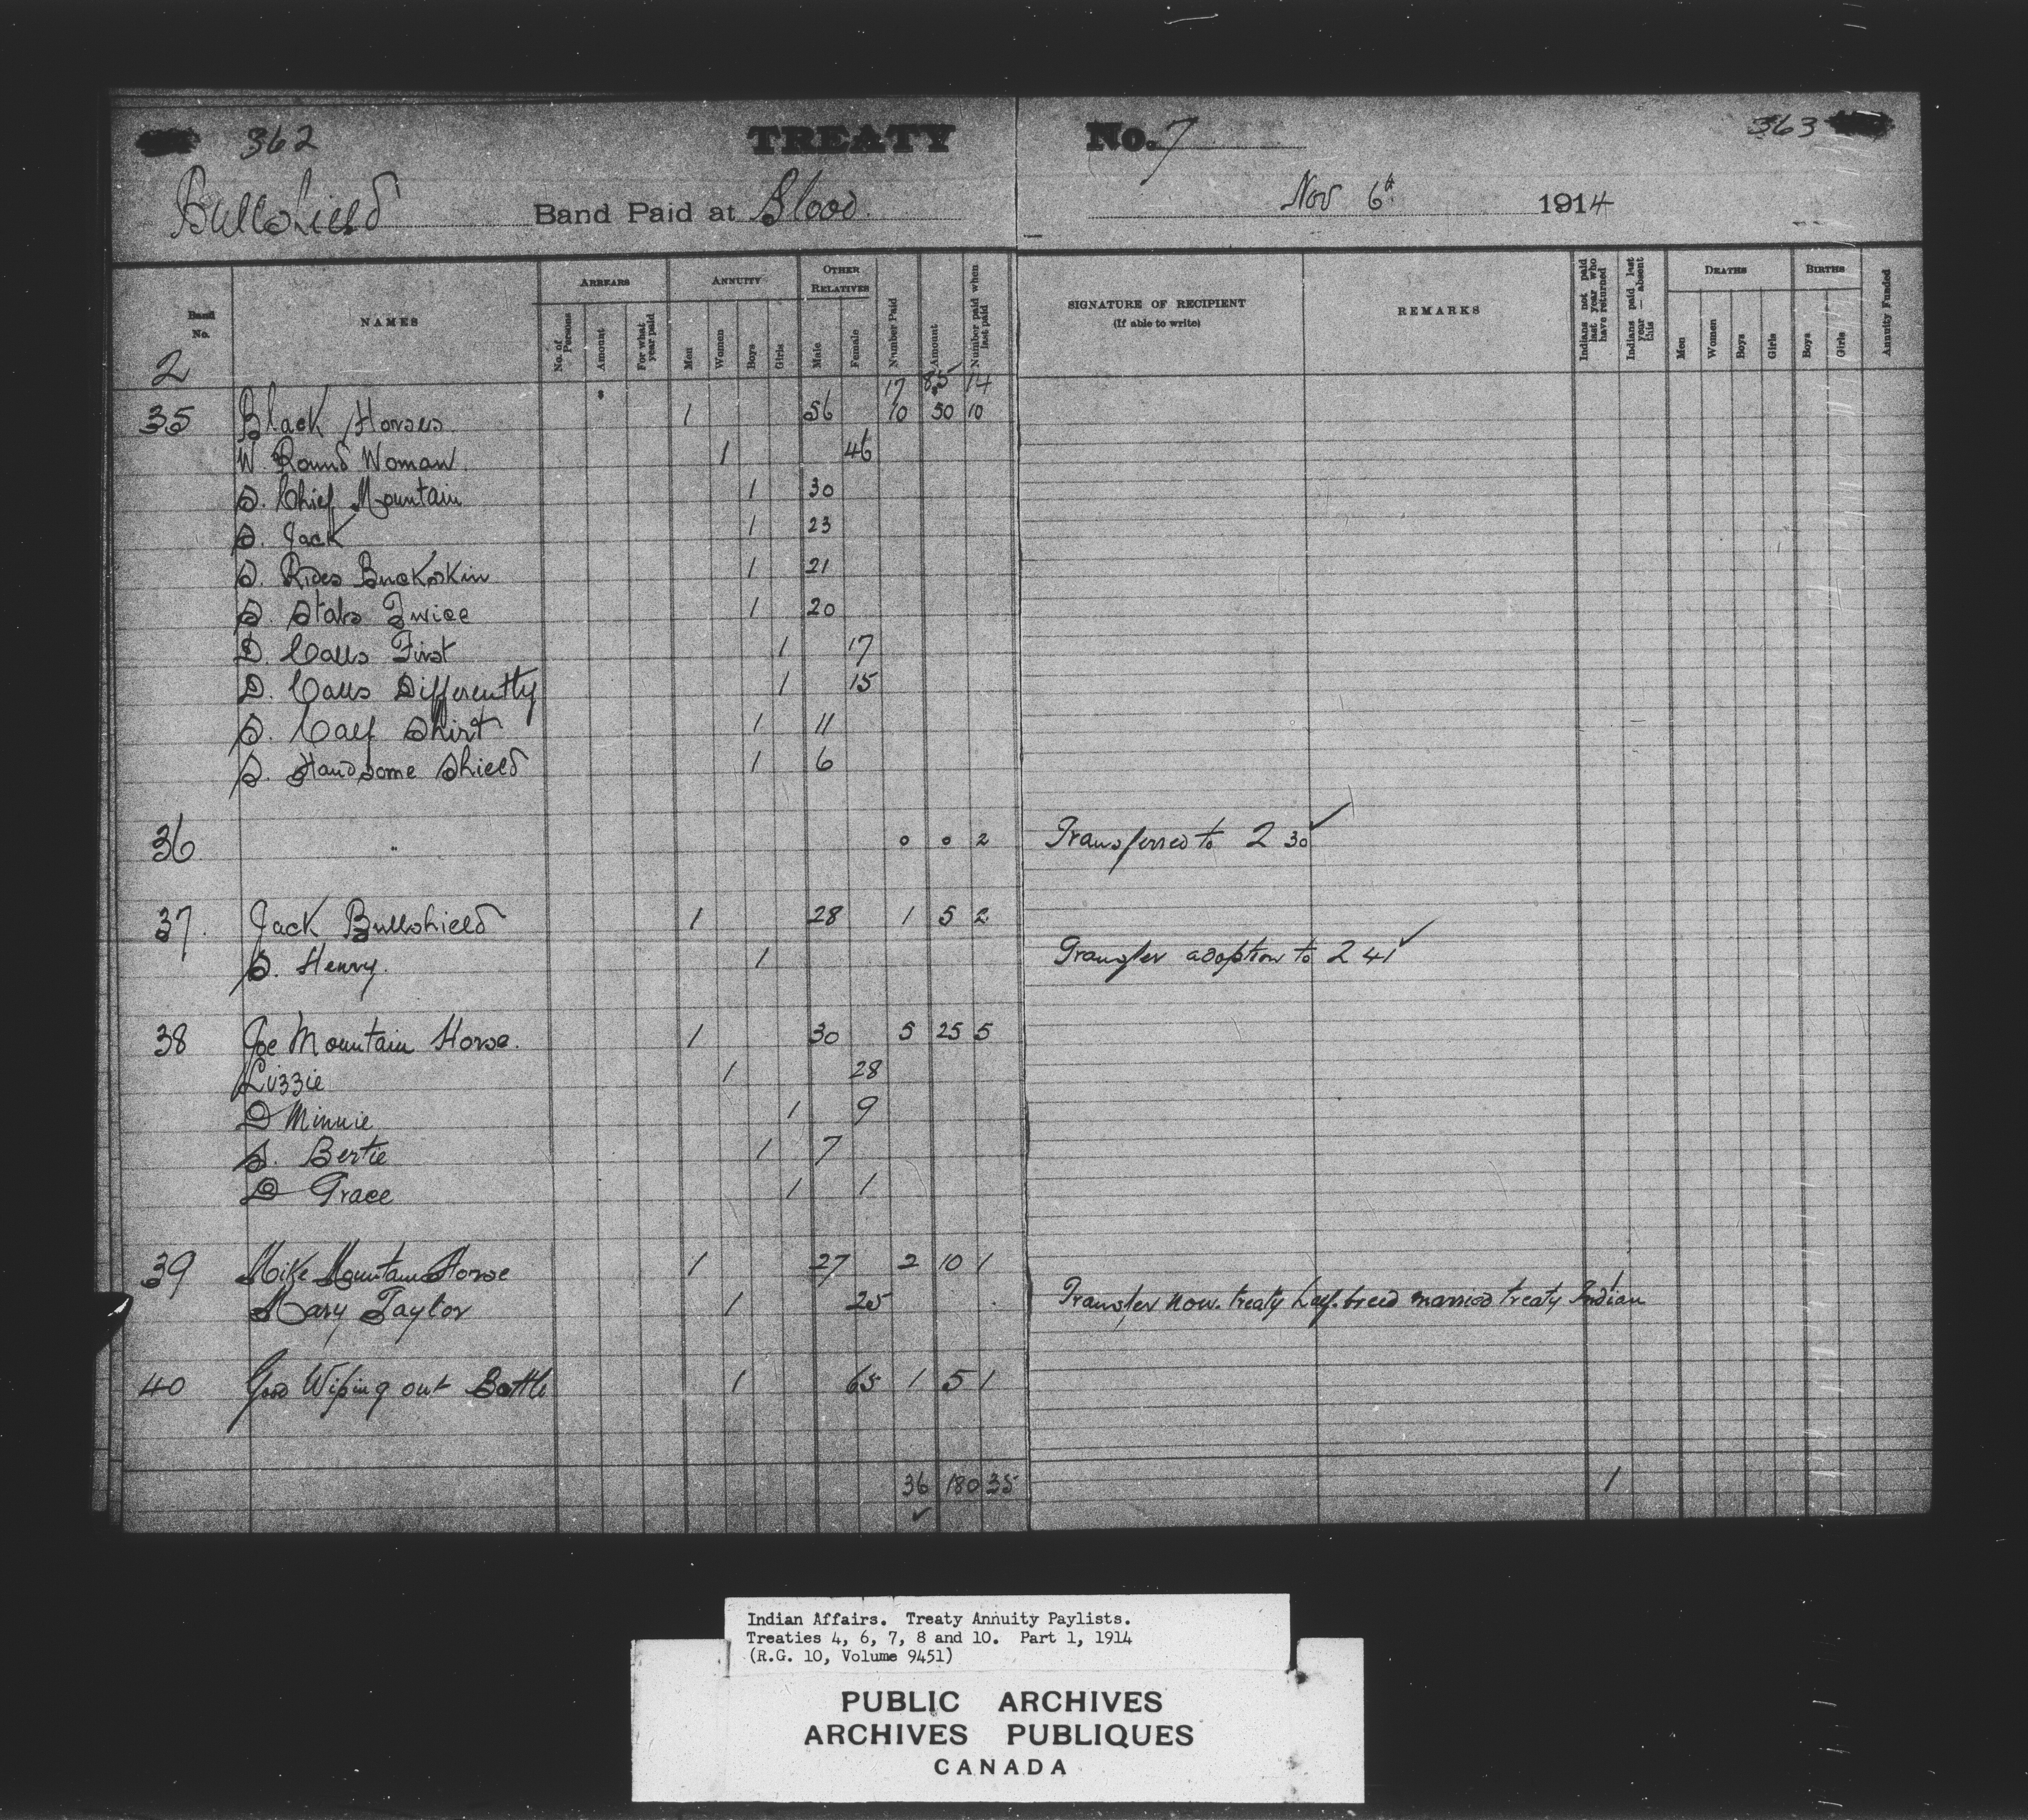 362 TREATY No. 7 363
Bullshield Band Paid at Blood. Nov 6th 1914
Band No. NAMES ARREARS ANNUITY OTHER RELATIVES Number Paid Amount Number paid when last paid SIGNATURE OF RECIPIENT (If able to write) REMARKS Indians not paid last year who have returned Indians paid last year — absent this DEATHS BIRTHS Annuity Funded
No. of Persons Amount For what year paid Men Women Boys Girls Male Female Men Women Boys Girls Boys Girls
2 17 85 14
35 Black Horses 1 56 10 50 10
W. Round Woman 1 46
S. Chief Mountain 1 30
S. Jack 1 23
S. Rides Buckskin 1 21
S. Stabs Twice 1 20
D. Calls First 1 17
D. Calls Differently 1 15
S. Calf Shirt 1 11
S. Handsome Shield 1 6
36 " 0 0 2 Transferred to 2 30 ✓
37. Jack Bullshield 1 28 1 5 2
S. Henry. 1 Transfer adoption to 2 41 ✓
38 Joe Mountain Horse. 1 30 5 25 5
Lizzie 1 28
D Minnie 1 9
S. Bertie 1 7
D Grace 1 1
39 Mike Mountain Horse 1 27 2 10 1
Mary Taylor 1 25 Transfer non. treaty half. breed married treaty Indian 1
40 Good Wiping out Battle 1 65 1 5 1
36 180 35 1
✓
Indian Affairs. Treaty Annuity Paylists.
Treaties 4, 6, 7, 8 and 10. Part 1, 1914
(R.G. 10, Volume 9451)
PUBLIC ARCHIVES
ARCHIVES PUBLIQUES
CANADA